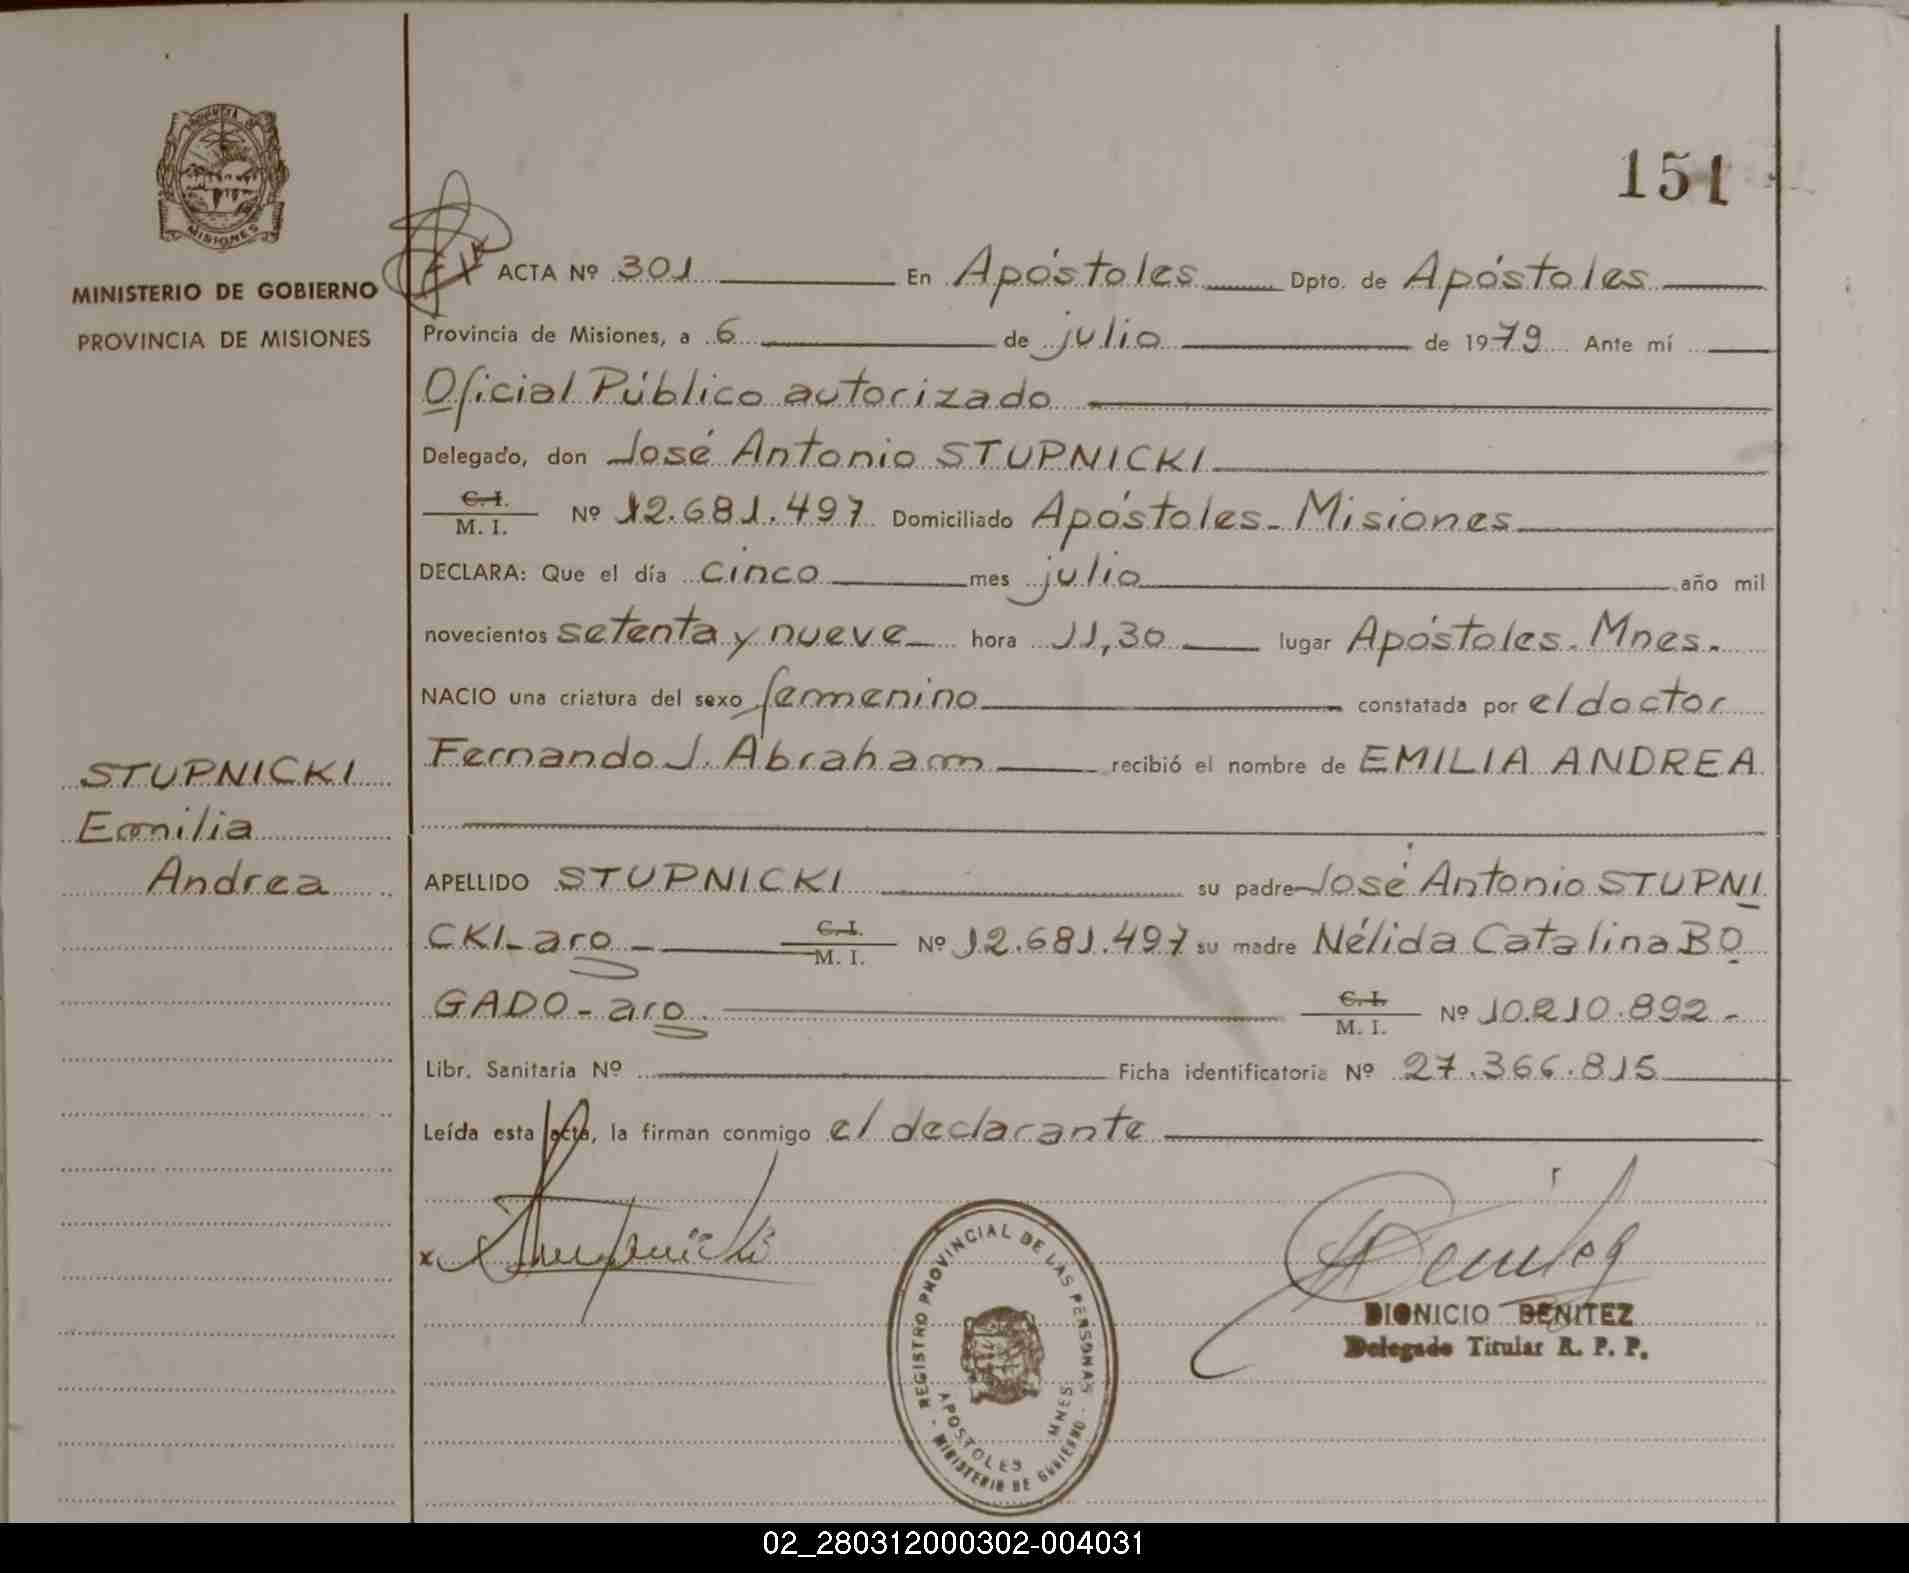 151
MISIONES
MINISTERIO DE GOBIERNO
PROVINCIA DE MISIONES
ACTA Nº 301 En Apóstoles Dpto. de Apóstoles
Provincia de Misiones, a 6 de julio de 1979 Ante mí
Oficial Público autorizado
Delegado, don José Antonio STUPNICKI
C. I.
M. I. Nº 12.681.497 Domiciliado Apóstoles - Misiones
DECLARA: Que el día cinco mes julio año mil
novecientos setenta y nueve hora 11,30 lugar Apóstoles. Mnes.
NACIO una criatura del sexo femenino constatada por el doctor
Fernando J. Abraham recibió el nombre de EMILIA ANDREA
STUPNICKI
Emilia
Andrea
APELLIDO STUPNICKI su padre José Antonio STUPNI
CKI - aro - C. I.
M. I. Nº 12.681.497 su madre Nélida Catalina BO
GADO - aro. C. I.
M. I. Nº 10.210.892 -
Libr. Sanitaria Nº Ficha identificatoria Nº 27.366.815
Leída esta acta, la firman conmigo el declarante
x Stupnicki
DIONICIO BENITEZ
Delegado Titular R. P. P.
REGISTRO PROVINCIAL DE LAS PERSONAS
APOSTOLES MNES
MINISTERIO DE GOBIERNO
02_280312000302-004031